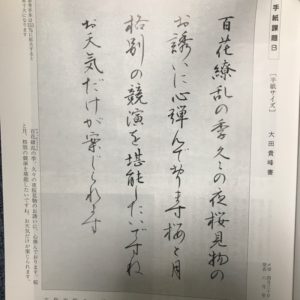 手紙課題B
〔手紙サイズ〕
大田貴峰書
百花繚乱の季久々の夜桜見物の
お誘いに心弾んでおります桜と月
格別の競演を堪能したいですね
お天気だけが案じられます
百花繚乱の季、久々の夜桜見物のお誘いに、心弾んでおります。桜
と月、格別の競演を堪能したいですね。お天気だけが案じられます。